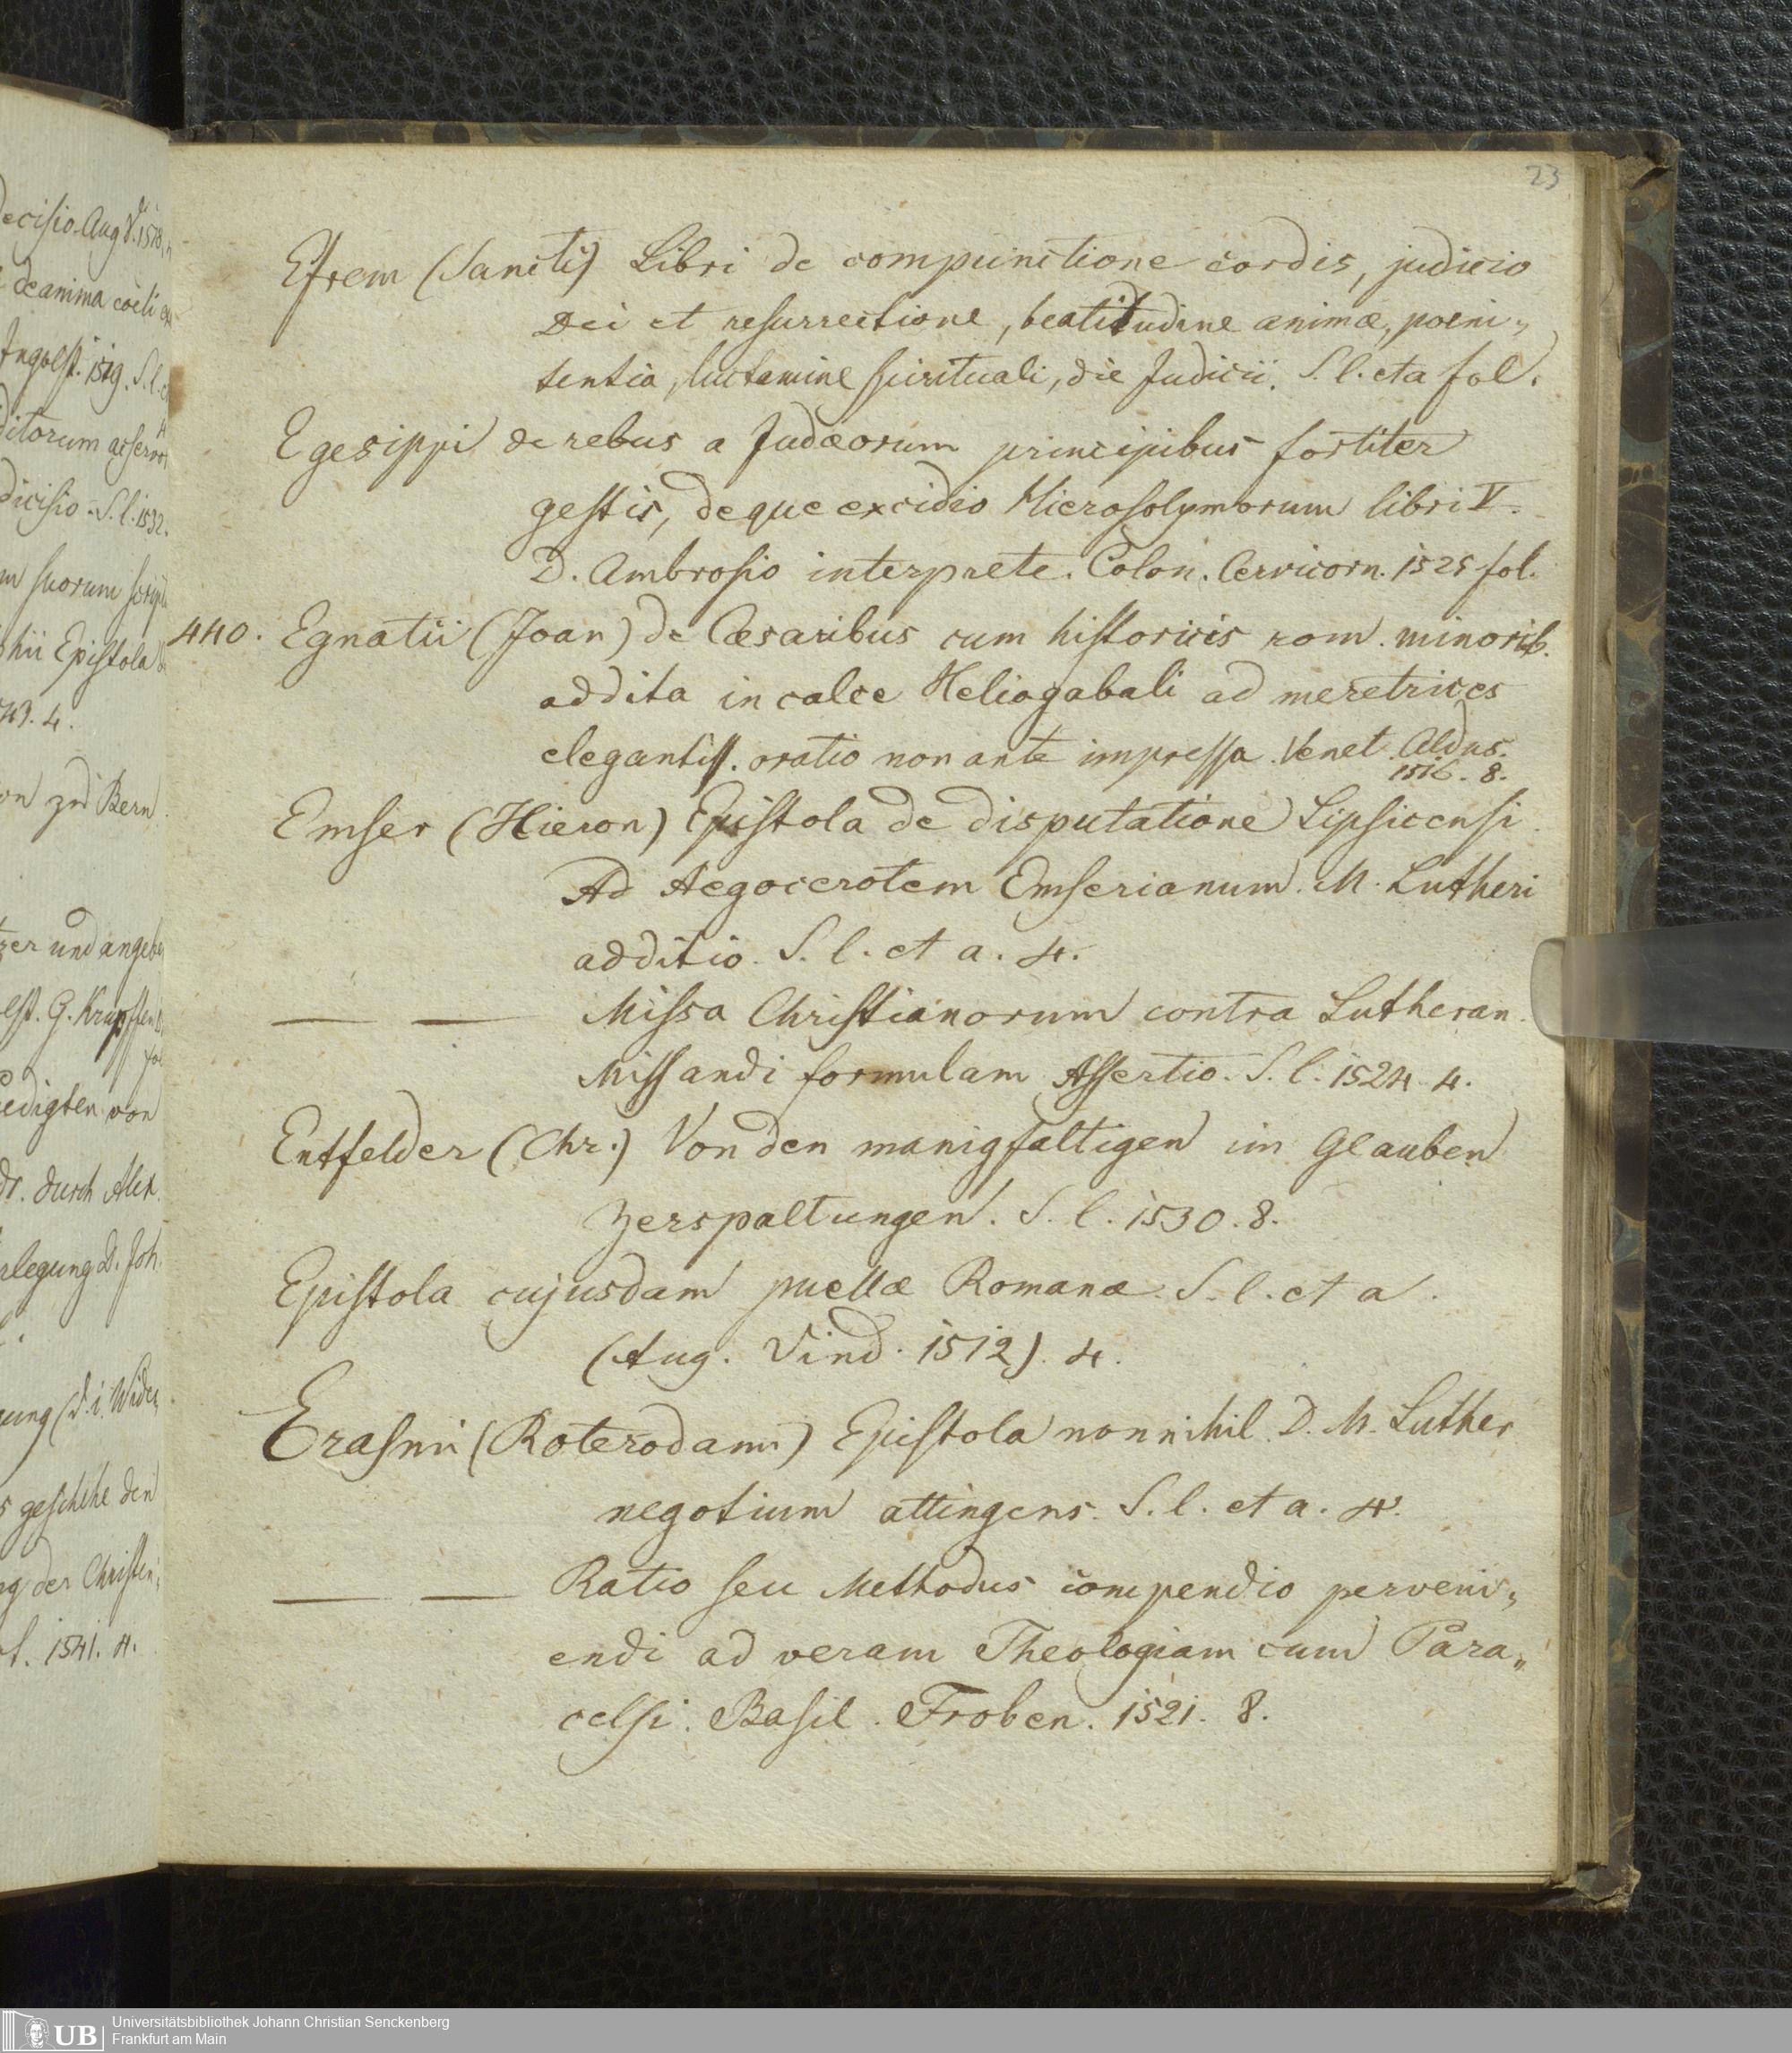 decisio. Aug V. 1518,
de anima coeli
Ingolst. 1519. S. l.
ditorum asser
dicisio. S. l. 1532.
m suorum
hii Epistola
49. 4.
on zu Bern
zer und
lst. G.
edigten von
dr. durch Alex.
legung D. Joh.
ung (d. i.
s geschehe den
ng der Christen
t. 1541. 4.
23
Efrem (Sancti) Libri de compunctione cordis, judicio
Dei et resurrectione, beatitudine animæ, poeni„
tentia, luctamine spirituali, die Judicii. S. l. et a fol.
Egesippi de rebus a Judæorum principibus fortiter
gestis, deque excidio Hierosolymorum libri V.
D. Ambrosio interprete. Colon. Cervicorn. 1525 fol.
440. Egnatii (Joan) de Cæsaribus cum historicis rom. minorib.
addita in calce Heliogabali ad meretrices
elegantiss. oratio non ante impressa. Venet. Aldus.
1516. 8.
Emser (Hieron) Epistola de disputatione Lipsicensi.
Ad Aegocerotem Emserianum. M. Lutheri
additio. S. l. et a. 4.
— — Missa Christianorum contra Lutheran.
Missandi formulam Assertio. S. l. 1524. 4.
Entfelder (Chr.) Von den manigfaltigen im Glauben
Zerspaltungen. S. l. 1530. 8.
Epistola cujusdam puellæ Romanæ. S. l. et a.
(Aug. Vind. 1512). 4.
Erasmi (Roterodami) Epistola nonnihil D. M. Luther
negotium attingens. S. l. et a. 4.
— — Ratio seu Methodus compendio perveni„
endi ad veram Theologiam cum Para„
celsi. Basil. Froben. 1521. 8.
UB Universitätsbibliothek Johann Christian Senckenberg
Frankfurt am Main